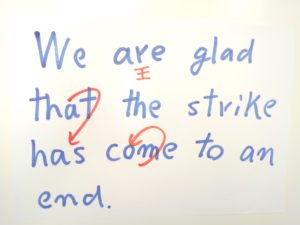 We are glad
that the strike
has come to an
end.